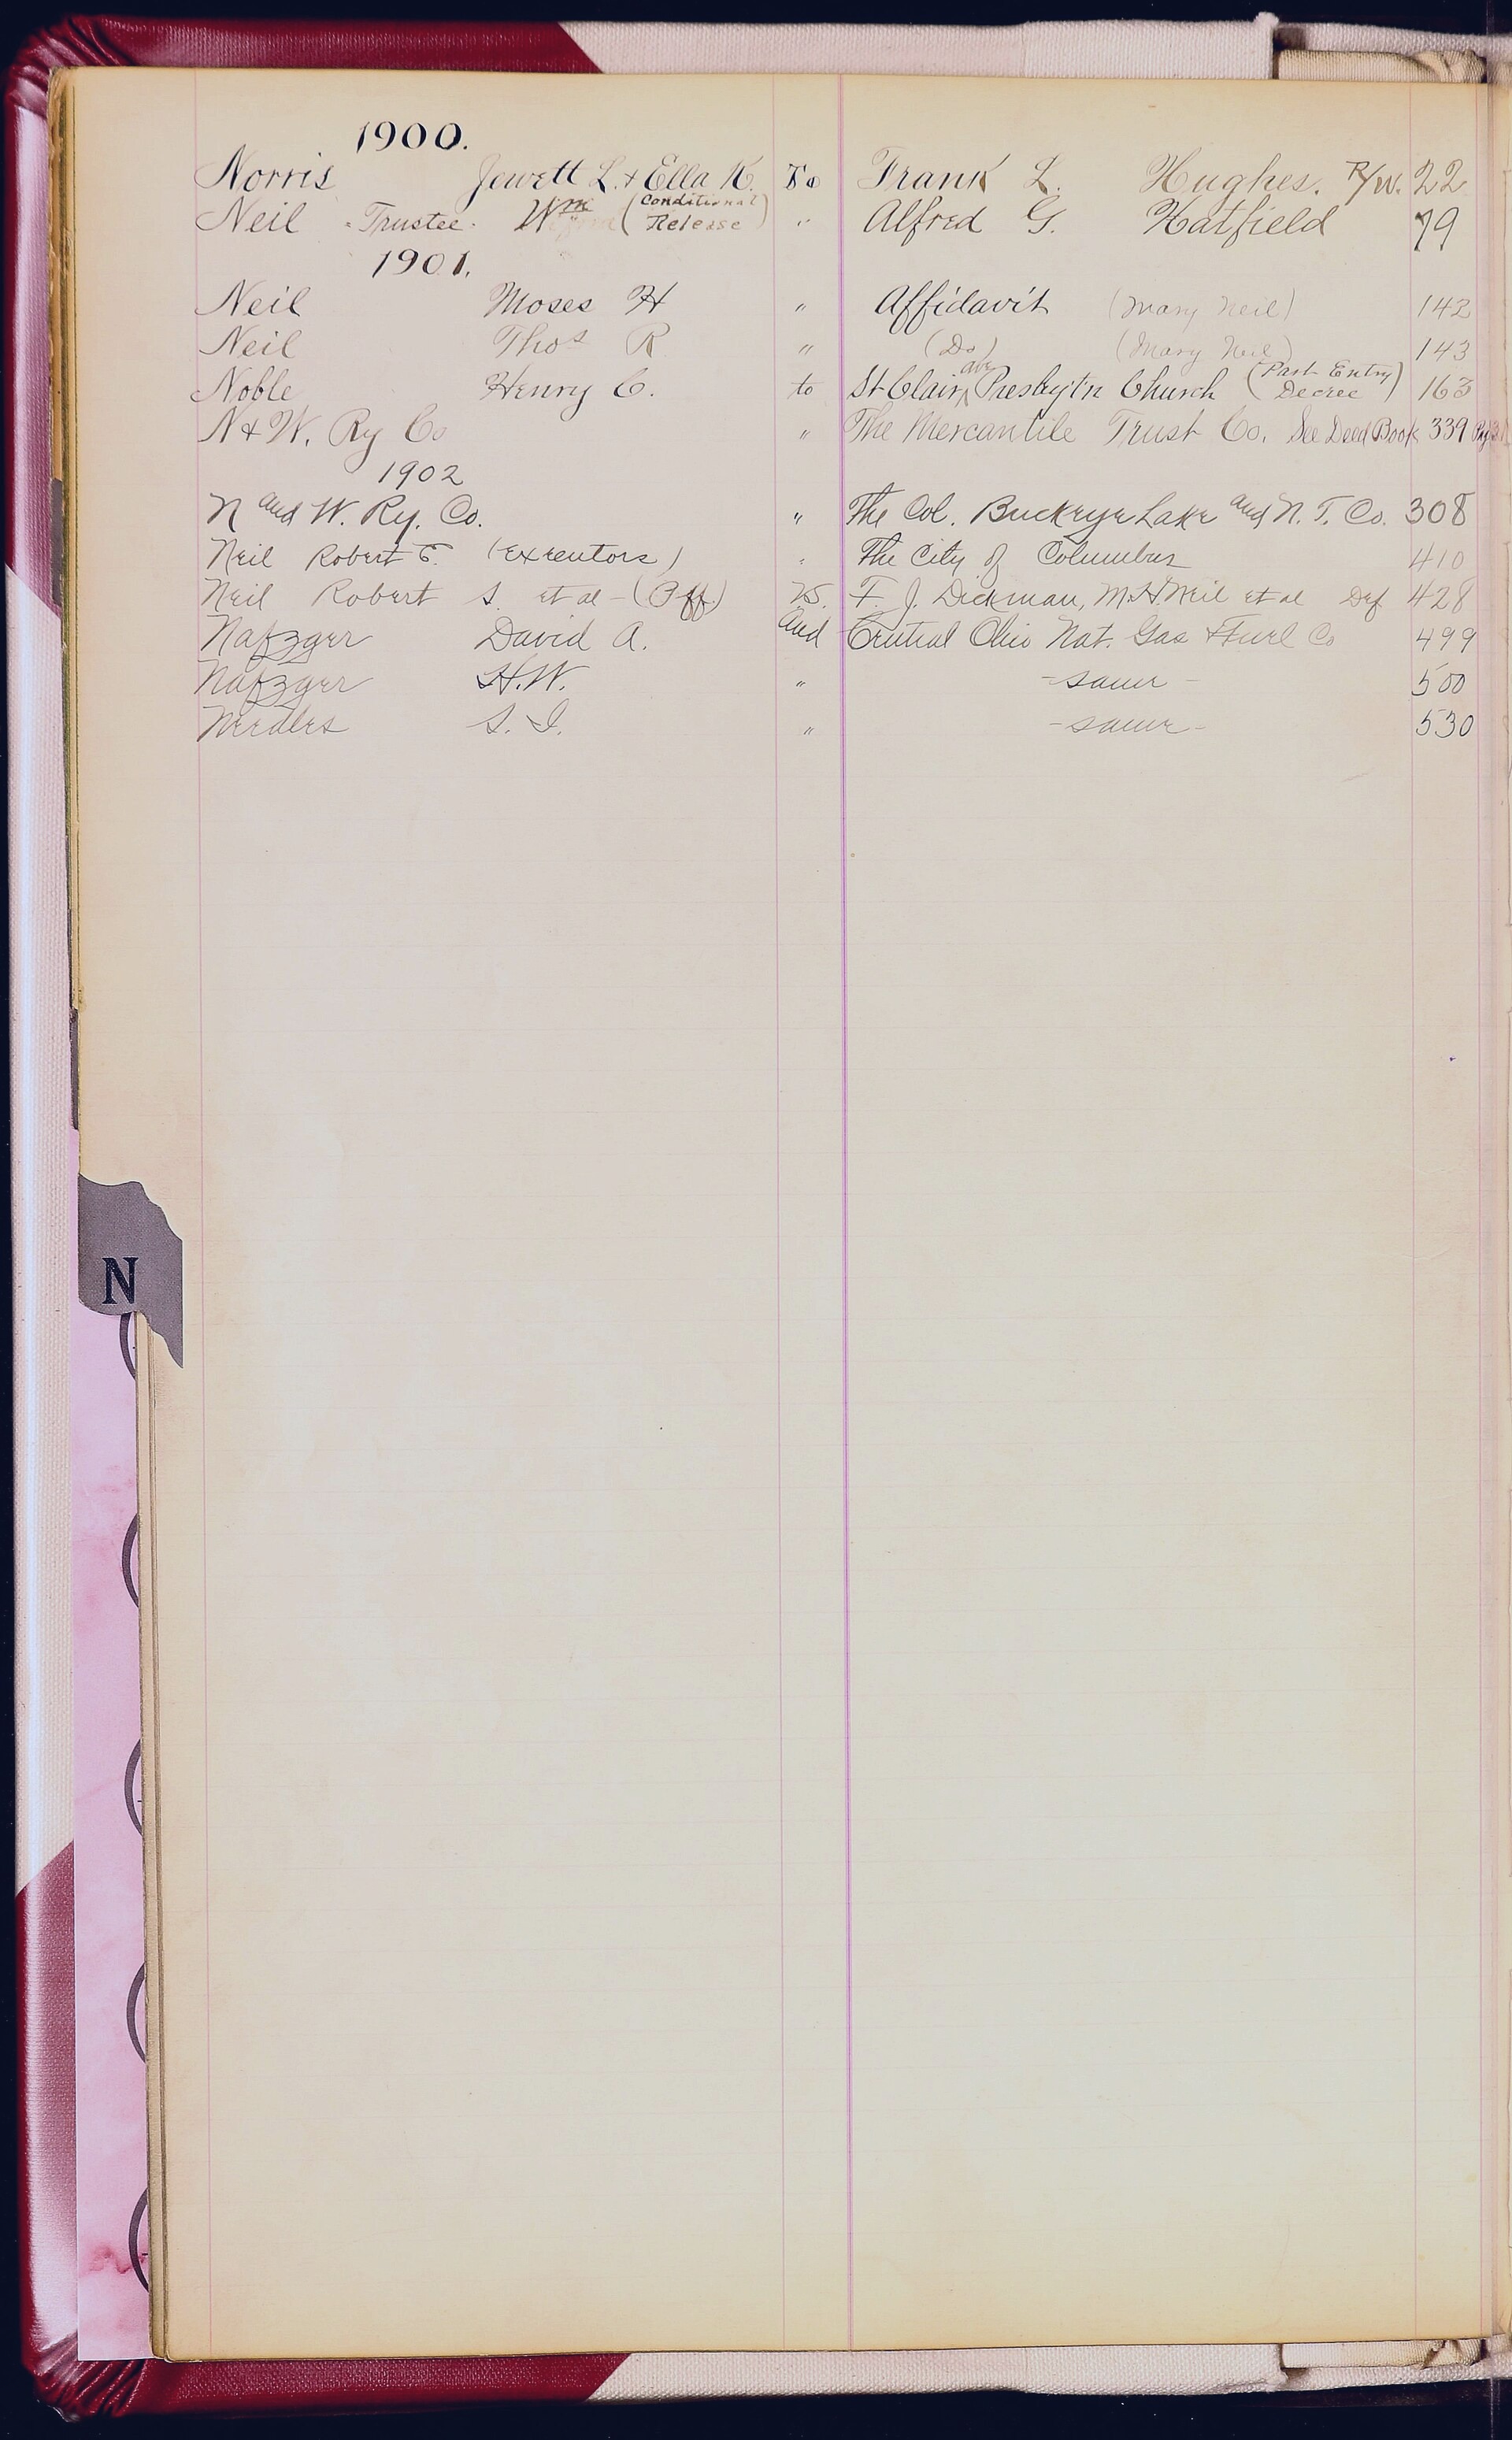 1900.
Norris Jewett L. & Ella K. To Frank L. Hughes. R/W. 22
Neil - Trustee - Wm (Conditional Release) " Alfred G. Hatfield 79
1901.
Neil Moses H " Affidavit (Mary Neil) 142
Neil Thos R " (Do) (Mary Neil) 143
Noble Henry C. to St Clair ave Presbyt'n Church (Part Entry Decree) 163
N & W. Ry Co " The Mercantile Trust Co. See Deed Book 339
1902
N and W. Ry. Co. " The Col. Buckeye Lake and N. T. Co. 308
Neil Robert E. (Executors) " The City of Columbus 410
Neil Robert S. et al - (Pff) vs. F. J. Dickman, M.H. Neil et al Def 428
Nafzger David A. and Central Ohio Nat. Gas & Fuel Co 499
Nafzger H.W. " - same - 500
Needles S. I. " - same - 530
N